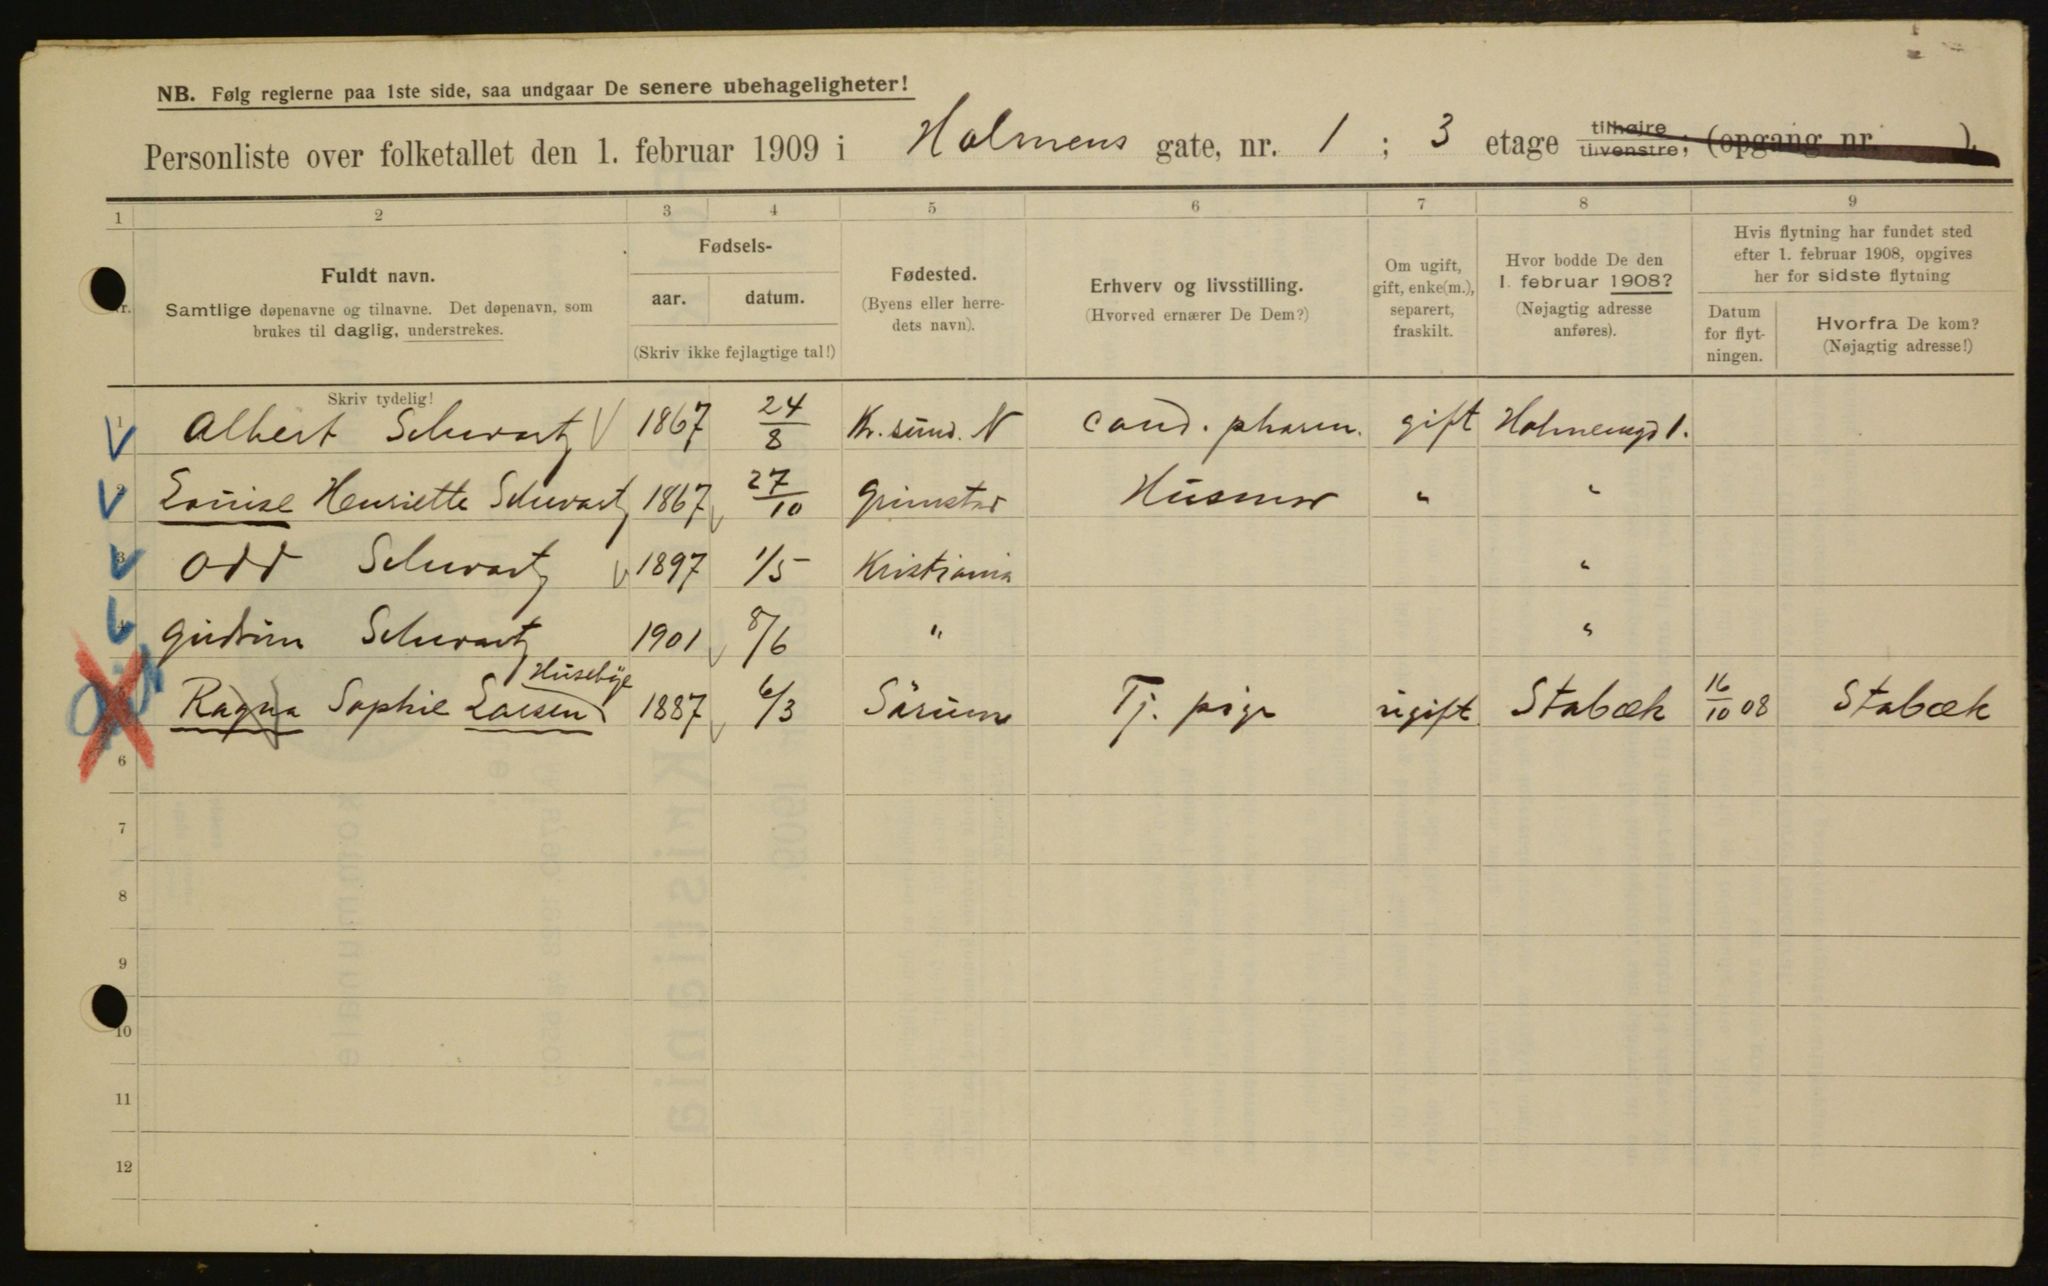 NB. Følg reglerne paa 1ste side, saa undgaar De senere ubehageligheter!
Personliste over folketallet den 1. februar 1909 i Holmens gate, nr. 1 ; 3 etage tilhøjre tilvenstre; (opgang nr. ).
1 2 3 4 5 6 7 8 9
Nr. Fuldt navn. Samtlige døpenavne og tilnavne. Det døpenavn, som brukes til daglig, understrekes.
Fødsels- aar. datum. (Skriv ikke fejlagtige tal!)
Fødested. (Byens eller herredets navn).
Erhverv og livsstilling. (Hvorved ernærer De Dem?)
Om ugift, gift, enke(m.), separert, fraskilt.
Hvor bodde De den 1. februar 1908? (Nøjagtig adresse anføres).
Hvis flytning har fundet sted efter 1. februar 1908, opgives her for sidste flytning
Datum for flytningen. Hvorfra De kom? (Nøjagtig adresse!)
Skriv tydelig!
1 Albert Schwartz 1867 24/8 Kr.sund. N cand. pharm. gift Holmensgd 1.
2 Louise Henriette Schwartz 1867 27/10 Grimstad Husmor " "
3 Odd Schwartz 1897 1/5 Kristiania "
4 Gudrun Schwartz 1901 8/6 " "
Husebye
Ragna Sophie Larsen 1887 6/3 Sørum Tj. pige ugift Stabæk 16/10 08 Stabæk
6
7
8
9
10
11
12